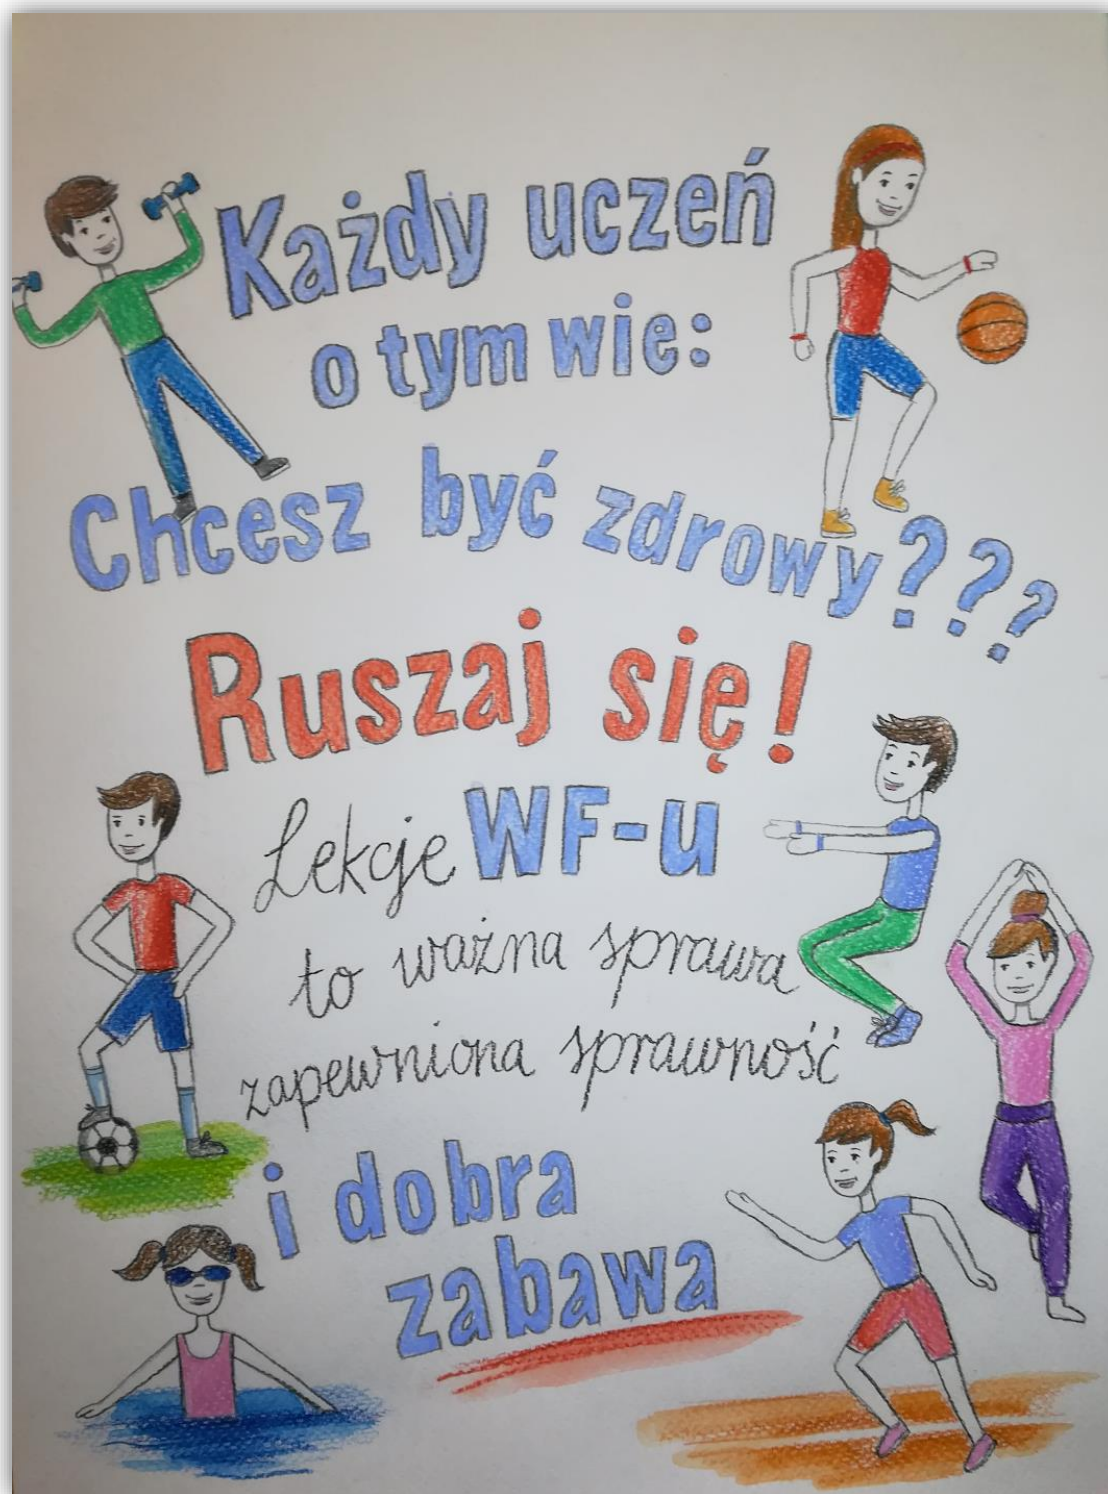 Każdy uczeń
o tym wie:
Chcesz być zdrowy???
Ruszaj się!
Lekcje WF-u
to ważna sprawa
zapewniona sprawność
i dobra
zabawa